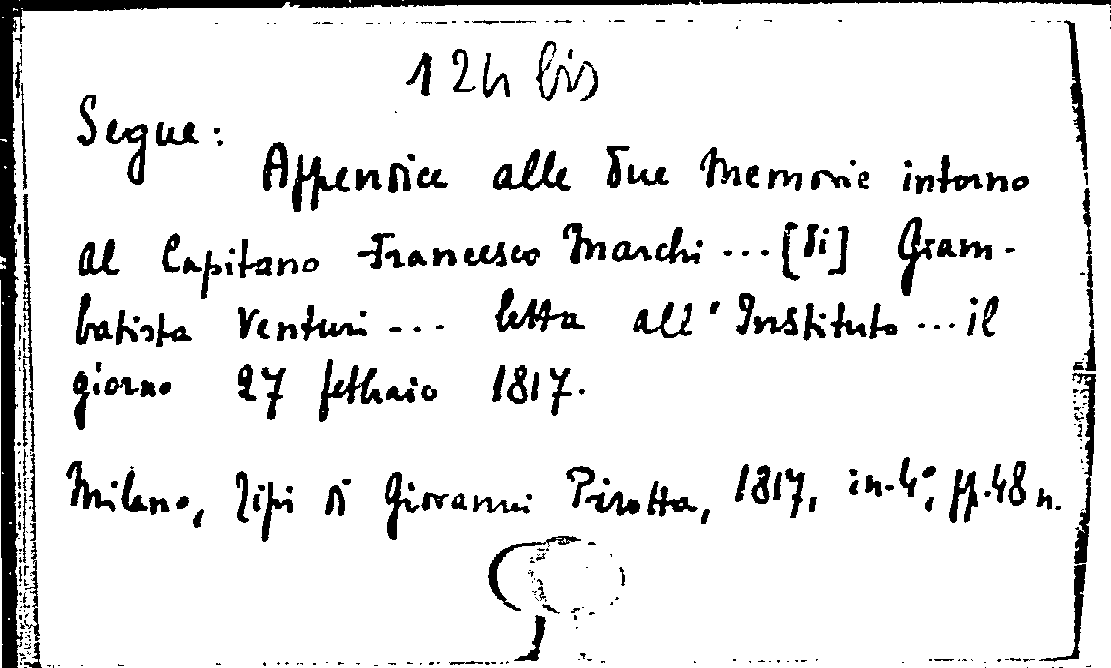 124 bis
Segue:
Appendice alle due Memorie intorno
al Capitano Francesco Marchi ... [di] Giam-
batista Venturi ... letta all'Instituto ... il
giorno 27 febbraio 1817.
Milano, Tipi di Giovanni Pirotta, 1817, in-4°, pp. 48 n.